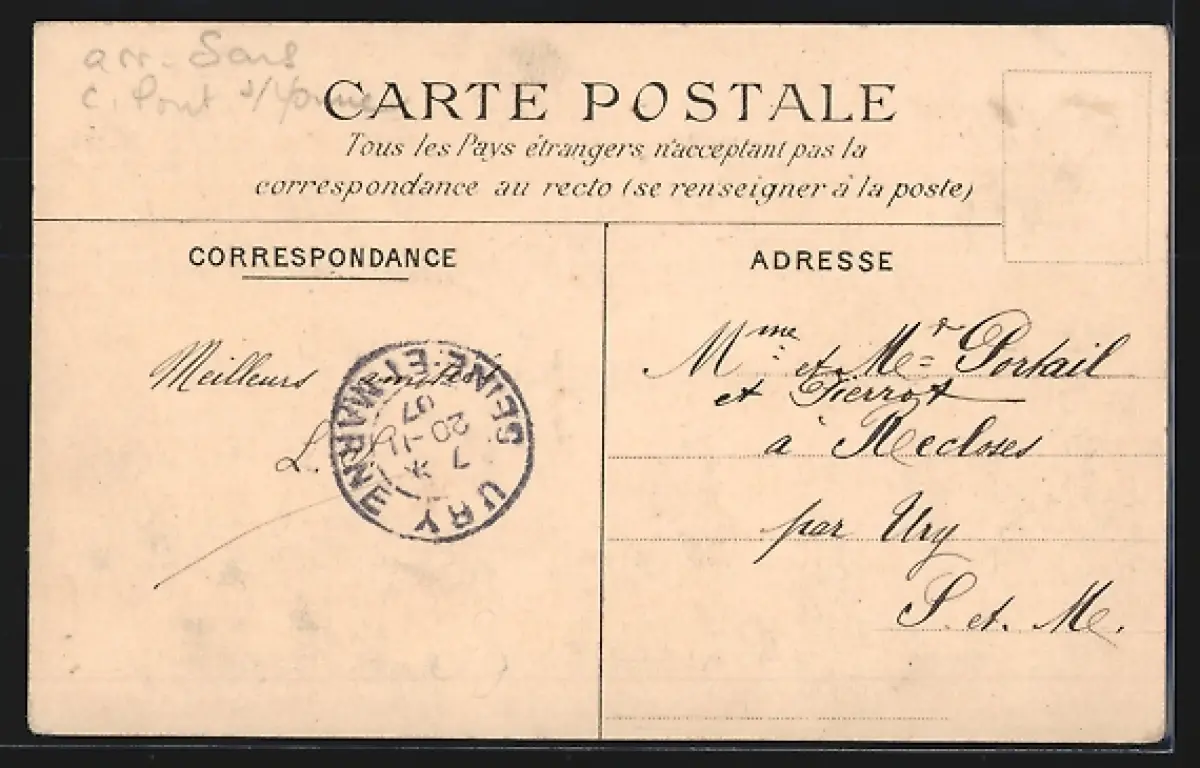 arr. Sens
C. Pont s/Yonne
CARTE POSTALE
Tous les Pays étrangers n'acceptant pas la
correspondance au recto (se renseigner à la poste)
CORRESPONDANCE
ADRESSE
Meilleurs
L.
URY SEINE-ET-MARNE
7
20 -11
07
Mme et Mr Portail
et Pierrot
à Recloses
par Ury
S. et. M.